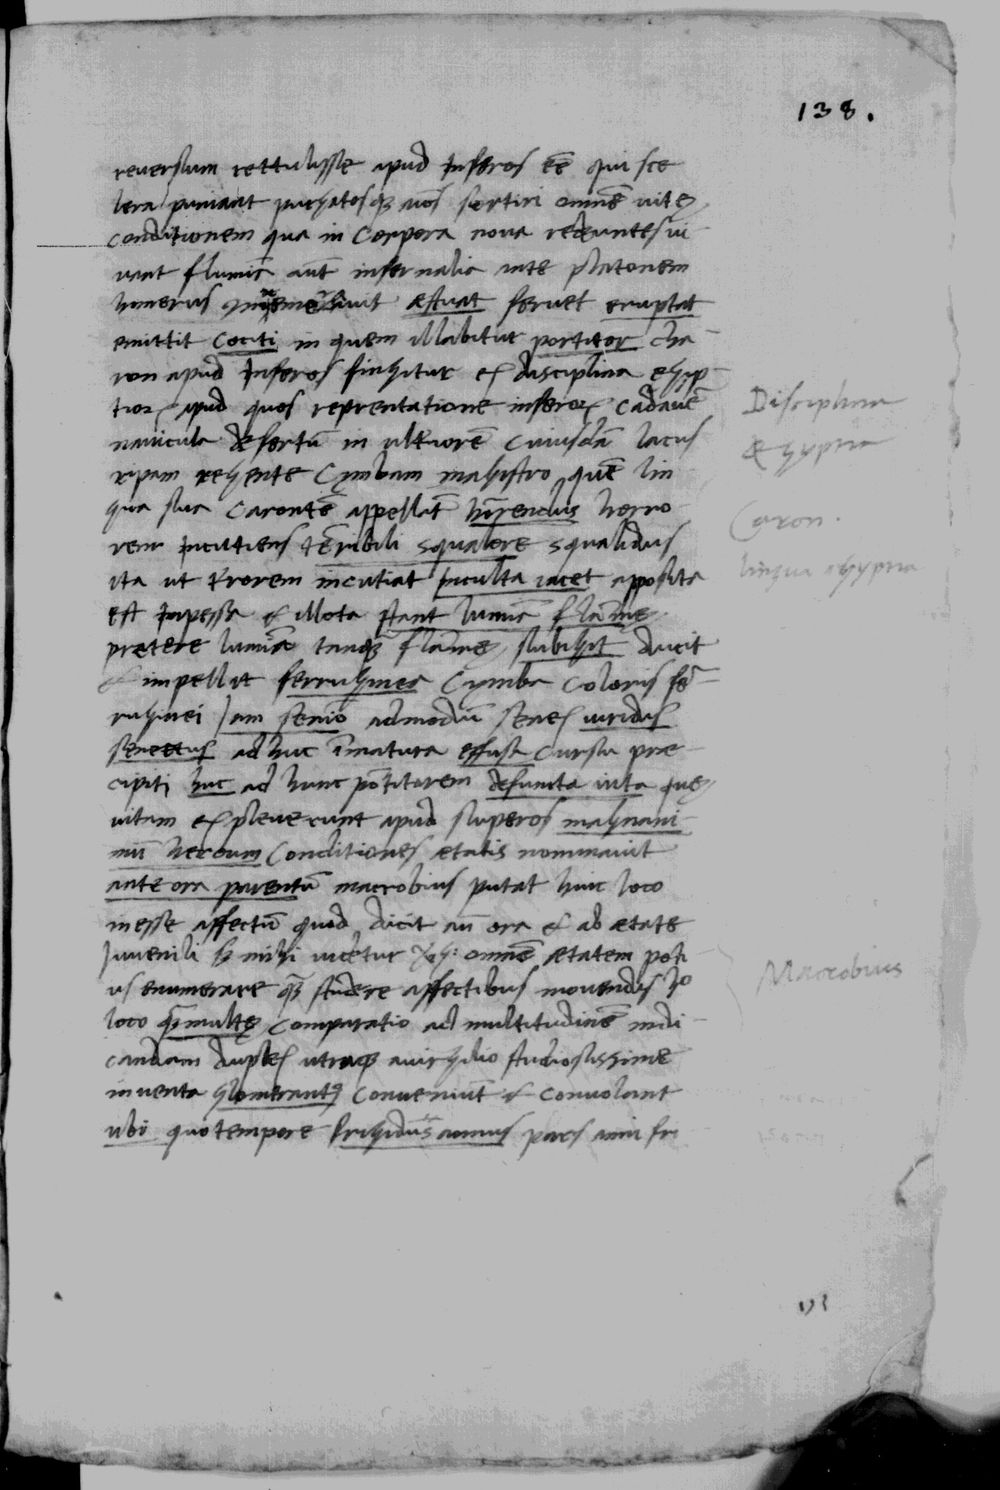 138.
reversum rettulisse apud Inferos eē qui sce
lera puniant purgatosq; aīos sortiri omnē uitę
conditionem qua in Corpora noua redeuntes ui
uant flumīa aūt infernalia ante platonem
homerus nominauit æstuat feruet eruptat
emittit Cociti in quem illabitur portitor cha
ron apud Inferos fingitur ex disciplina egip
tioꝝ apud quos reprentatione inferoꝝ Cadauē
nauicula defertū in ulteriorē Cuiusdā lacus
ripam regente Cymbam magistro quē lin
gua sua Carontē appellāt horrendus horro
rem Incutiens tērribili squalore squalidus
ita ut terrorem incutiat Inculta iacet apposita
est Impessa & illota stant lumīa flāmę
pretere lumīa tanq; flāmę subigit ducit
& impellit ferruginea Cymba Coloris fer
ruginei Iam senior admodū senex uiridis
senectus ad huc īmatura effusa Cursu præ
cipiti huc ad hunc portitorem defuncta uita quę
uitam expleuerunt apud superos magnani
mū heroum Conditiones ætatis nominauit
ante ora parentū macrobius putat huic loco
inesse affectū quod dicit aū ora & ab ætate
Iuuenili sꝫ mihi uidetur Vig: omnē ætatem poti
us enumerare quā studere affectibus mouendis ho
loco quā multę Comparatio ad multitudinē indi
candam duplex utraq; a uirgilio studiosissime
inuenta glomerantꝰ Conueniūt & Conuolant
ubi quo tempore frigidus annus pars anni fri
Disciplina
Ægyptia
Caron.
lingua ægyptia
Macrobius